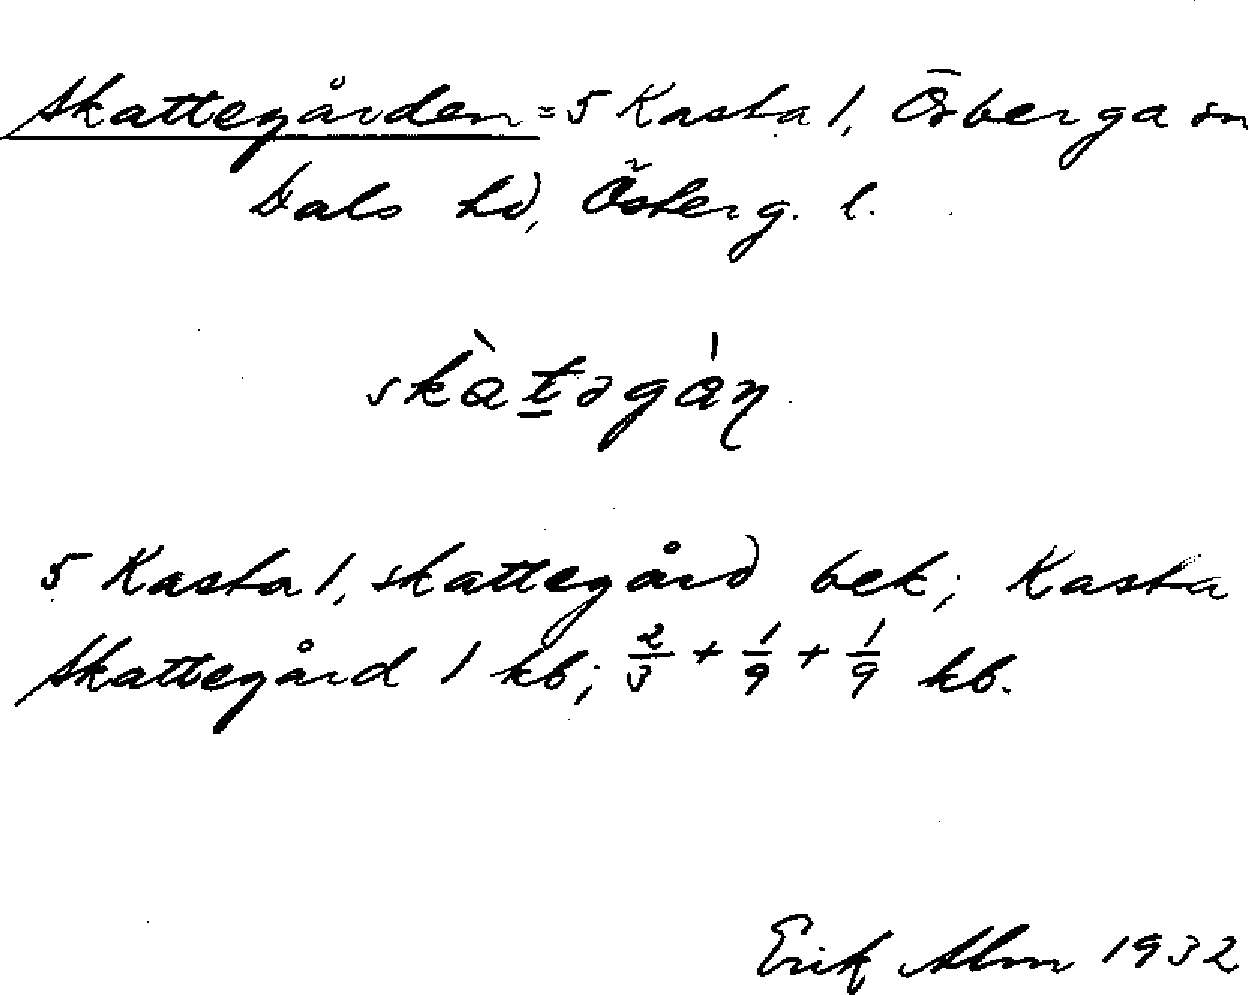 Skattegården = 5 Kasta 1, Örberga sn
Dals hd, Österg. l.
skàtəgán
5 Kasta 1, skattegård bek; Kasta
Skattegård 1 hb; 2/3 + 1/9 + 1/9 hb.
Erik Alm 1932